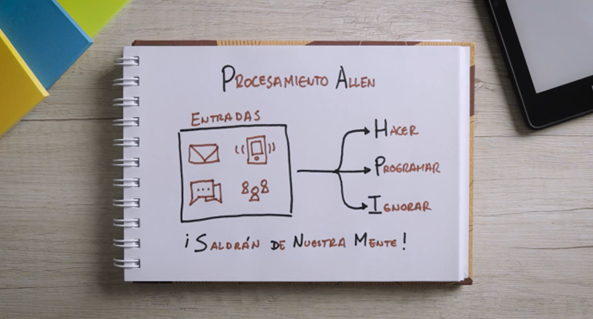 Procesamiento Allen
Entradas
Hacer
Programar
Ignorar
¡Saldrán de Nuestra Mente!